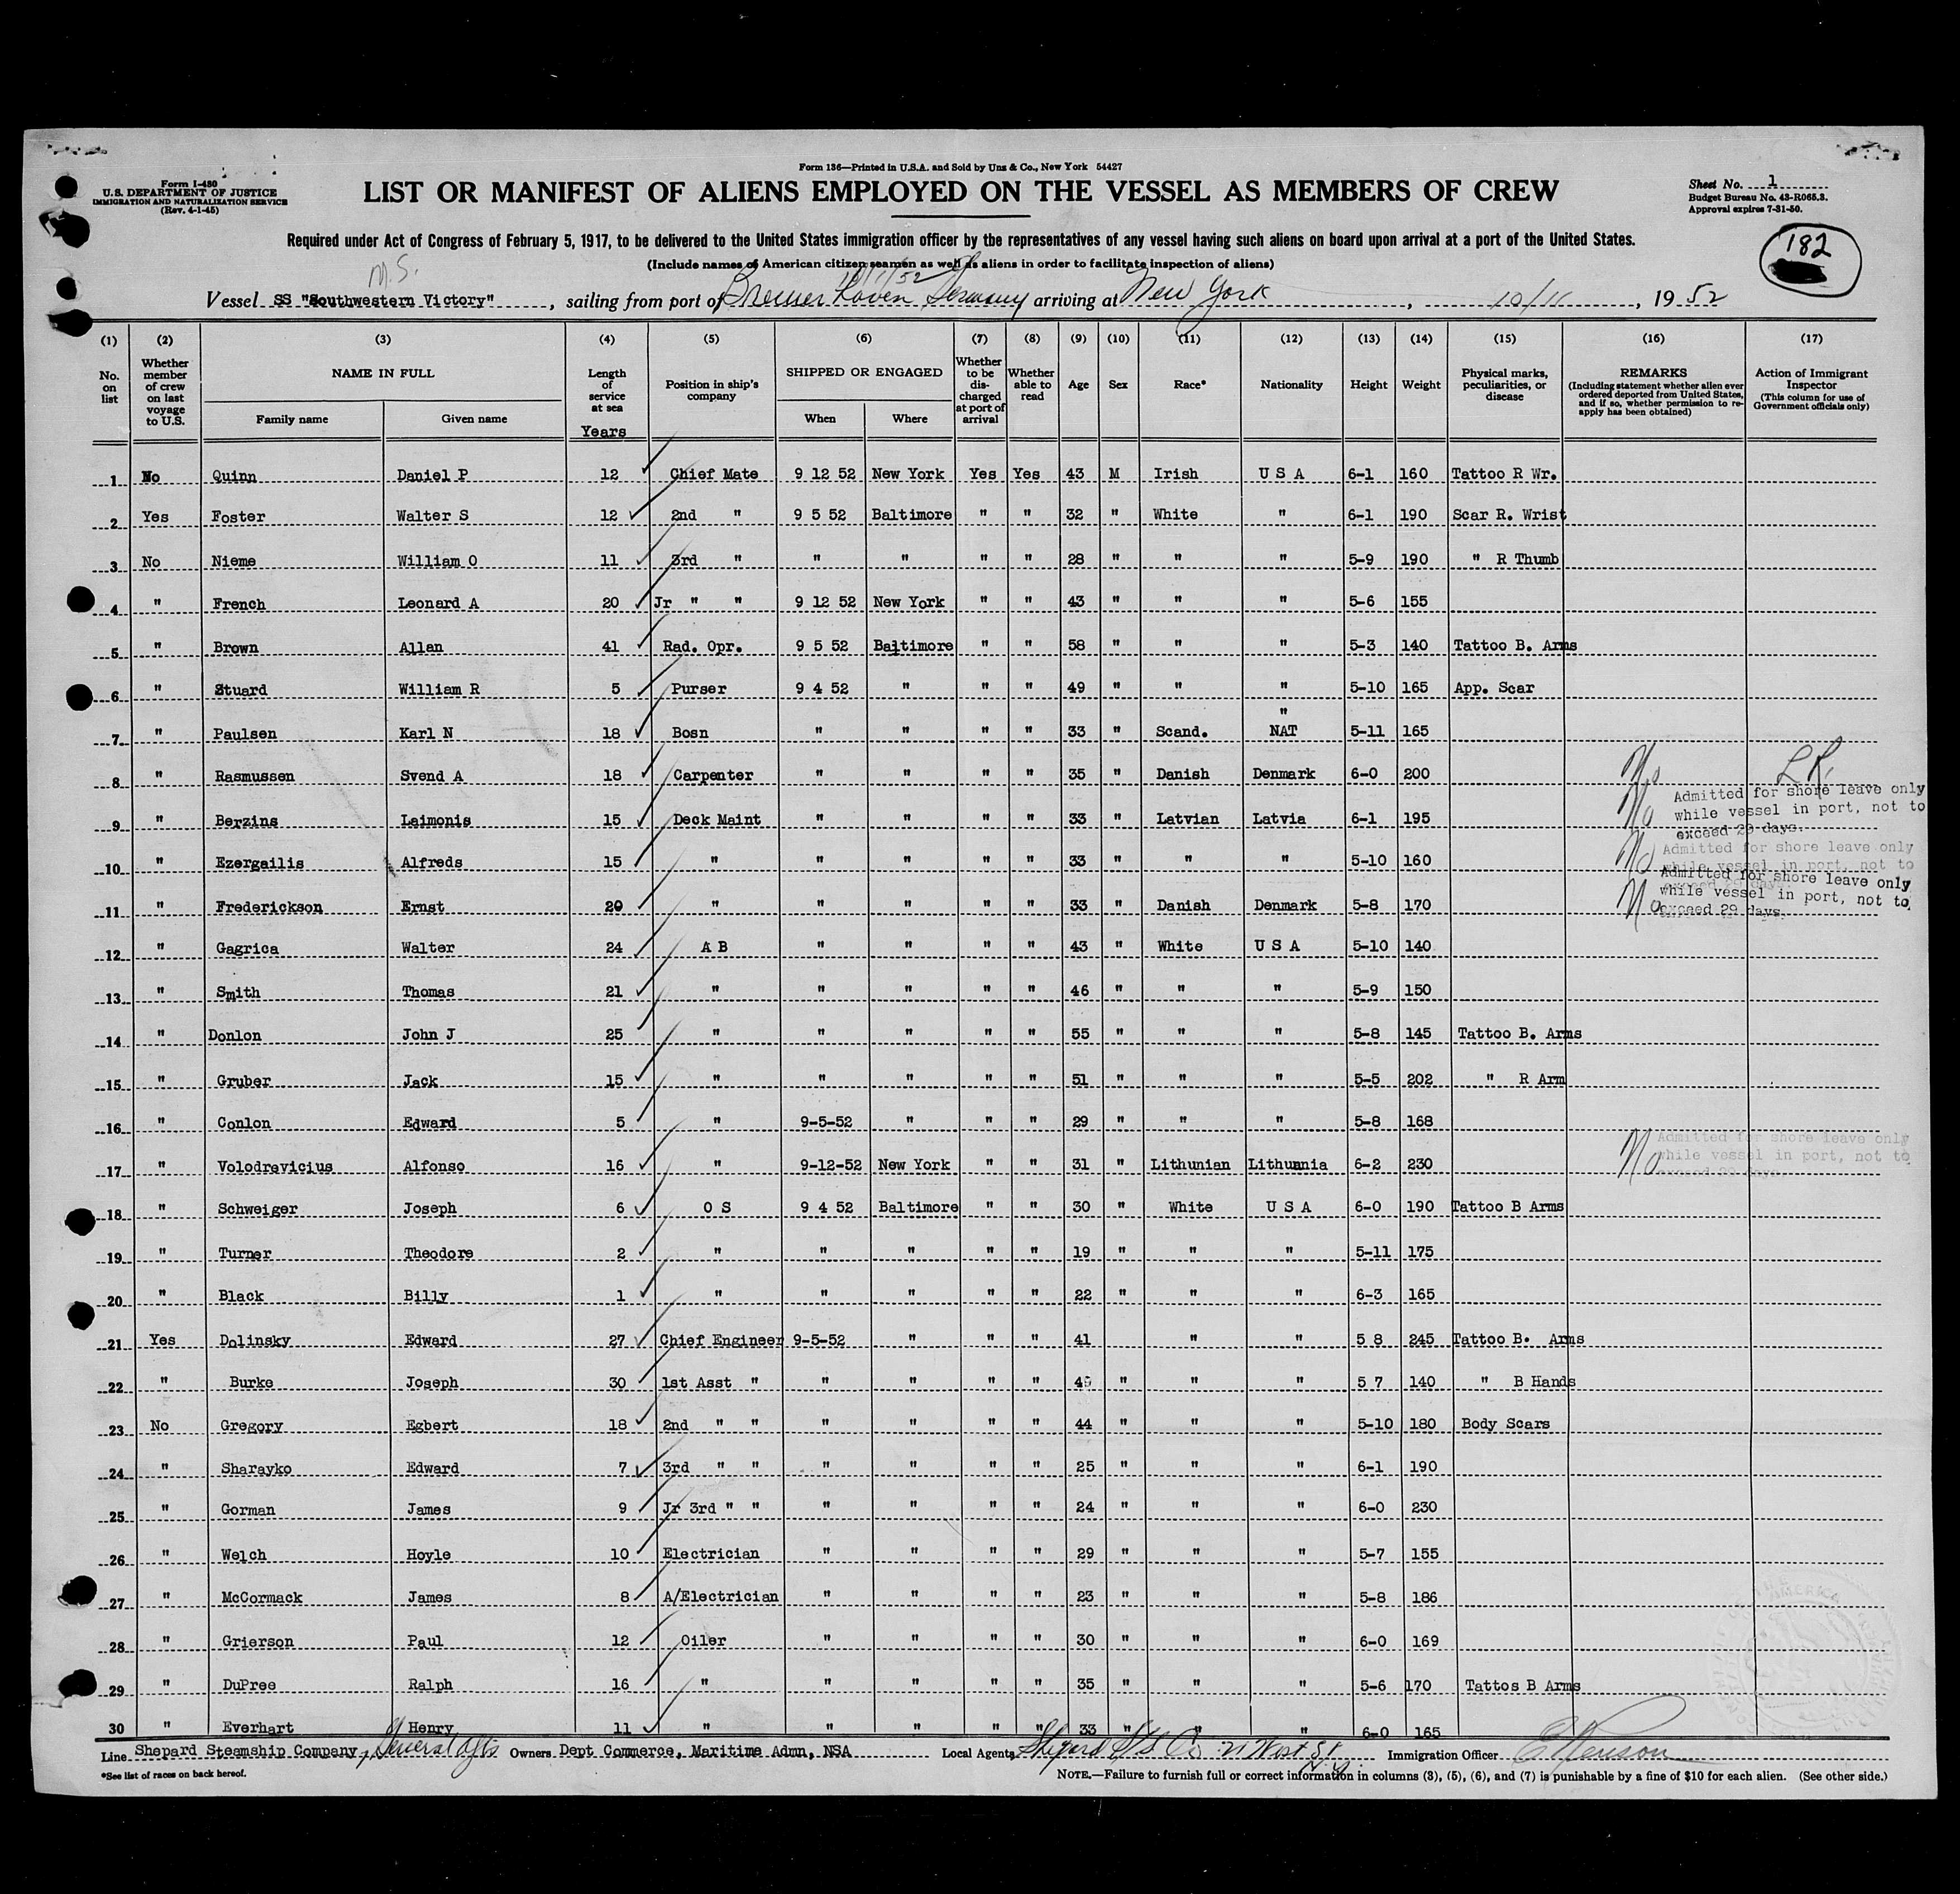 Form 136—Printed in U.S.A. and Sold by Unz & Co., New York 54427
Form I-480
U.S. DEPARTMENT OF JUSTICE
IMMIGRATION AND NATURALIZATION SERVICE
(Rev. 4-1-45)
LIST OR MANIFEST OF ALIENS EMPLOYED ON THE VESSEL AS MEMBERS OF CREW
Sheet No. 1
Budget Bureau No. 43-R065.3.
Approval expires 7-31-50.
182
Required under Act of Congress of February 5, 1917, to be delivered to the United States immigration officer by the representatives of any vessel having such aliens on board upon arrival at a port of the United States.
(Include names of American citizen seamen as well as aliens in order to facilitate inspection of aliens)
M.S. 10/1/52
Vessel SS "Southwestern Victory", sailing from port of Bremer Haven Germany arriving at New York, 10/11, 1952
(1) (2) (3) (4) (5) (6) (7) (8) (9) (10) (11) (12) (13) (14) (15) (16) (17)
No. on list
Whether member of crew on last voyage to U.S.
NAME IN FULL
Family name
Given name
Length of service at sea
Years
Position in ship's company
SHIPPED OR ENGAGED
When
Where
Whether to be discharged at port of arrival
Whether able to read
Age
Sex
Race*
Nationality
Height
Weight
Physical marks, peculiarities, or disease
REMARKS
(Including statement whether alien ever ordered deported from United States, and if so, whether permission to reapply has been obtained)
Action of Immigrant Inspector
(This column for use of Government officials only)
1 No Quinn Daniel P 12 Chief Mate 9 12 52 New York Yes Yes 43 M Irish U S A 6-1 160 Tattoo R Wr.
2 Yes Foster Walter S 12 2nd " 9 5 52 Baltimore " " 32 " White " 6-1 190 Scar R. Wrist
3 No Nieme William O 11 3rd " " " " " 28 " " " 5-9 190 " R Thumb
4 " French Leonard A 20 Jr " " 9 12 52 New York " " 43 " " " 5-6 155
5 " Brown Allan 41 Rad. Opr. 9 5 52 Baltimore " " 58 " " " 5-3 140 Tattoo B. Arms
6 " Stuard William R 5 Purser 9 4 52 " " " 49 " " " 5-10 165 App. Scar
7 " Paulsen Karl N 18 Bosn " " " " 33 " Scand. " NAT 5-11 165
8 " Rasmussen Svend A 18 Carpenter " " " " 35 " Danish Denmark 6-0 200 No LR.
9 " Berzins Laimonis 15 Deck Maint " " " " 33 " Latvian Latvia 6-1 195 No Admitted for shore leave only while vessel in port, not to exceed 29 days.
10 " Ezergailis Alfreds 15 " " " " " 33 " " " 5-10 160 No Admitted for shore leave only while vessel in port, not to exceed 29 days.
11 " Frederickson Ernst 20 " " " " " 33 " Danish Denmark 5-8 170 No Admitted for shore leave only while vessel in port, not to exceed 29 days.
12 " Gagrica Walter 24 A B " " " " 43 " White U S A 5-10 140
13 " Smith Thomas 21 " " " " " 46 " " " 5-9 150
14 " Donlon John J 25 " " " " " 55 " " " 5-8 145 Tattoo B. Arms
15 " Gruber Jack 15 " " " " " 51 " " " 5-5 202 " R Arm
16 " Conlon Edward 5 " 9-5-52 " " " 29 " " " 5-8 168
17 " Volodravicius Alfonso 16 " 9-12-52 New York " " 31 " Lithunian Lithuania 6-2 230 No Admitted for shore leave only while vessel in port, not to exceed 29 days.
18 " Schweiger Joseph 6 O S 9 4 52 Baltimore " " 30 " White U S A 6-0 190 Tattoo B Arms
19 " Turner Theodore 2 " " " " " 19 " " " 5-11 175
20 " Black Billy 1 " " " " " 22 " " " 6-3 165
21 Yes Dolinsky Edward 27 Chief Engineer 9-5-52 " " " 41 " " 5 8 245 Tattoo B. Arms
22 " Burke Joseph 30 1st Asst " " " " " " " " 5 7 140 " B Hands
23 No Gregory Egbert 18 2nd " " " " " " 44 " " " 5-10 180 Body Scars
24 " Sharayko Edward 7 3rd " " " " " " 25 " " " 6-1 190
25 " Gorman James 9 Jr 3rd " " " " " " 24 " " " 6-0 230
26 " Welch Hoyle 10 Electrician " " " " 29 " " " 5-7 155
27 " McCormack James 8 A/Electrician " " " " 23 " " " 5-8 186
28 " Grierson Paul 12 Oiler " " " " 30 " " " 6-0 169
29 " DuPree Ralph 16 " " " " " 35 " " " 5-6 170 Tattos B Arms
30 " Everhart Henry 11 " " " " " 33 " " " 6-0 165
Line Shepard Steamship Company, General Agts Owners Dept Commerce, Maritime Admn, NSA Local Agents Shepard S/S Co 21 West St N.Y. Immigration Officer
*See list of races on back hereof.
NOTE.—Failure to furnish full or correct information in columns (3), (5), (6), and (7) is punishable by a fine of $10 for each alien. (See other side.)